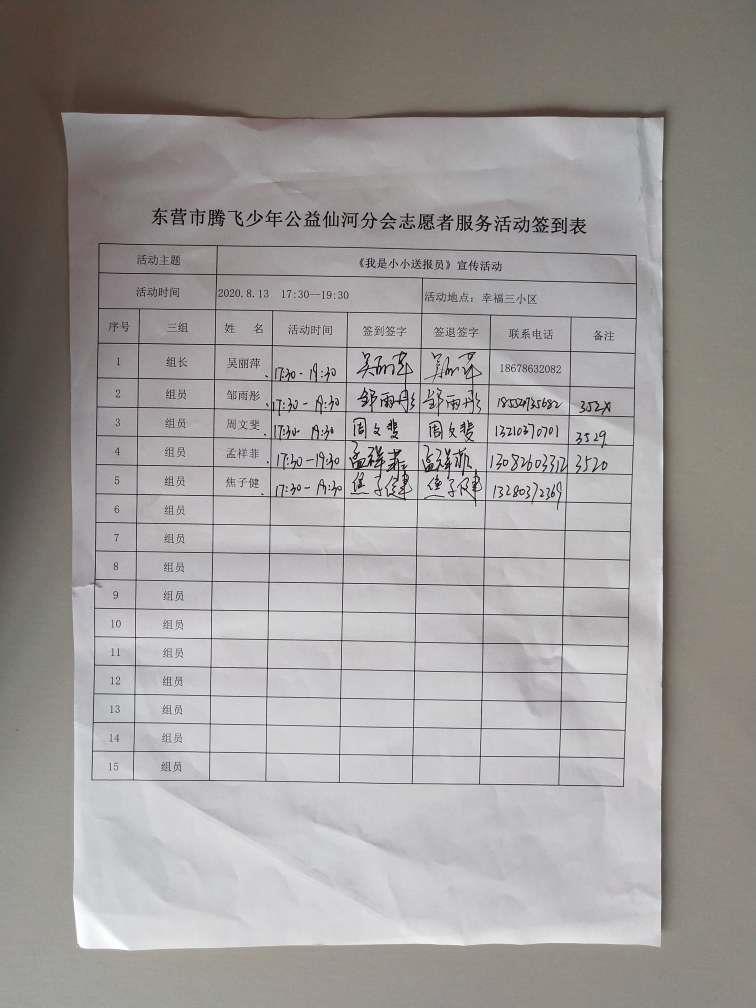 东营市腾飞少年公益仙河分会志愿者服务活动签到表
活动主题 《我是小小送报员》宣传活动
活动时间 2020.8.13 17:30—19:30 活动地点：幸福三小区
序号 三组 姓 名 活动时间 签到签字 签退签字 联系电话 备注
1 组长 吴丽萍 17:30-19:30 吴丽萍 吴丽萍 18678632082
2 组员 邹雨彤 17:30-19:30 邹雨彤 邹雨彤 352X
3 组员 周文斐 17:30-19:30 周文斐 周文斐 13210370701 3529
4 组员 孟祥菲 17:30-19:30 孟祥菲 孟祥菲 13082603312 3520
5 组员 焦子健 17:30-19:30 焦子健 焦子健 13280372369
6 组员
7 组员
8 组员
9 组员
10 组员
11 组员
12 组员
13 组员
14 组员
15 组员